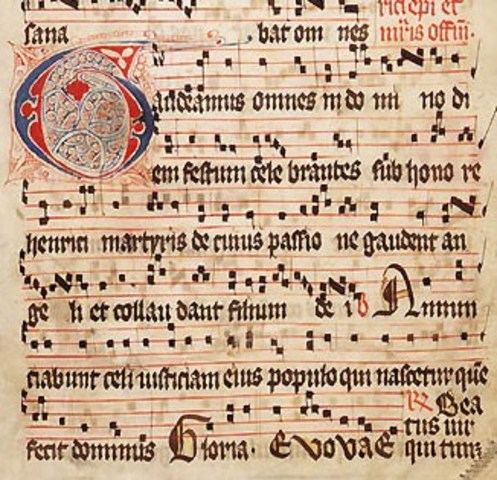 sana bat om nes rici epi et
mr̄is offm̄.
Gaudeamus omnes in do mi no di
em festum cele brantes sub hono re
henrici martyris de cuius passio ne gaudent an
ge li et collau dant filium de i ℣ Annun
ciabunt celi iusticiam eius populo qui nascetur quē
℟ Bea
fecit dominus Gloria. Evovae tus uir
qui tim